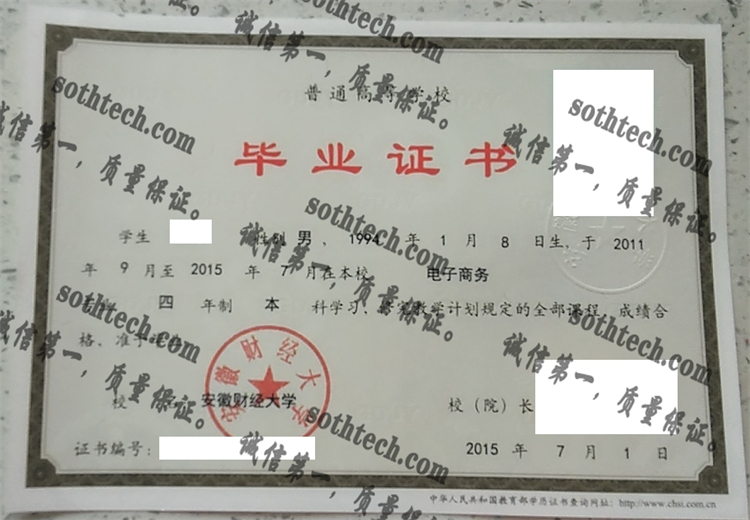 普通高等学校
毕业证书
学生 性别 男 ，1994 年 1 月 8 日生，于 2011
年 9 月至 2015 年 7 月在本校 电子商务
四 年制 本 科学习， 教学计划规定的全部课程，成绩合
格，准予毕业
校 安徽财经大学 校（院）长
证书编号： 2015 年 7 月 1 日
中华人民共和国教育部学历证书查询网址：http://www.chsi.com.cn
安徽财经大学
sothtech.com
诚信第一，质量保证。
sothtech.com
诚信第一，质量保证。
sothtech.com
诚信第一，质量保证。
sothtech.com
诚信第一，质量保证。
sothtech.com
诚信第一，质量保证。
sothtech.com
诚信第一，质量保证。
sothtech.com
诚信第一，质量保证。
sothtech.com
诚信第一，质量保证。